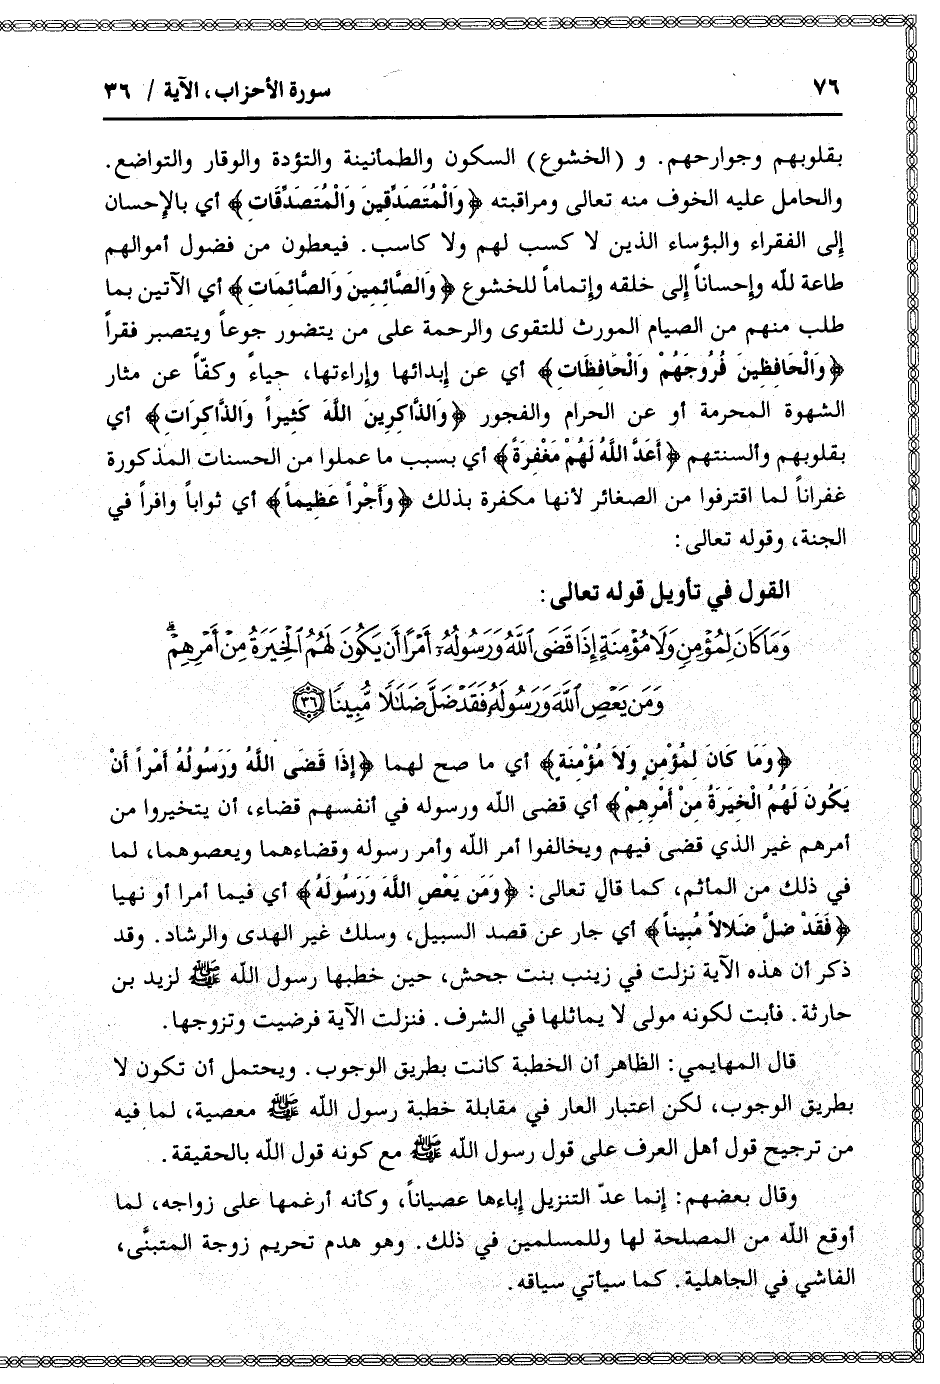 ٧٦
سورة الأحزاب، الآية / ٣٦
بقلوبهم وجوارحهم. و (الخشوع) السكون والطمأنينة والتؤدة والوقار والتواضع.
والحامل عليه الخوف منه تعالى ومراقبته ﴿وَالْمُتَصَدِّقِينَ وَالْمُتَصَدِّقَاتِ﴾ أي بالإحسان
إلى الفقراء والبؤساء الذين لا كسب لهم ولا كاسب. فيعطون من فضول أموالهم
طاعة لله وإحساناً إلى خلقه وإتماماً للخشوع ﴿وَالصَّائِمِينَ وَالصَّائِمَاتِ﴾ أي الآتين بما
طلب منهم من الصيام المورث للتقوى والرحمة على من يتضور جوعاً ويتصبر فقراً
﴿وَالْحَافِظِينَ فُرُوجَهُمْ وَالْحَافِظَاتِ﴾ أي عن إبدائها وإراءتها، حياءً وكفّاً عن مثار
الشهوة المحرمة أو عن الحرام والفجور ﴿وَالذَّاكِرِينَ اللَّهَ كَثِيراً وَالذَّاكِرَاتِ﴾ أي
بقلوبهم وألسنتهم ﴿أَعَدَّ اللَّهُ لَهُمْ مَغْفِرَةً﴾ أي بسبب ما عملوا من الحسنات المذكورة
غفراناً لما اقترفوا من الصغائر لأنها مكفرة بذلك ﴿وَأَجْراً عَظِيماً﴾ أي ثواباً وافراً في
الجنة، وقوله تعالى:
القول في تأويل قوله تعالى:
وَمَا كَانَ لِمُؤْمِنٍ وَلَا مُؤْمِنَةٍ إِذَا قَضَى ٱللَّهُ وَرَسُولُهُۥٓ أَمْرًا أَن يَكُونَ لَهُمُ ٱلْخِيَرَةُ مِنْ أَمْرِهِمْ ۗ
وَمَن يَعْصِ ٱللَّهَ وَرَسُولَهُۥ فَقَدْ ضَلَّ ضَلَٰلًا مُّبِينًا ٣٦
﴿وَمَا كَانَ لِمُؤْمِنٍ وَلاَ مُؤْمِنَةٍ﴾ أي ما صح لهما ﴿إِذَا قَضَى اللَّهُ وَرَسُولُهُ أَمْراً أَنْ
يَكُونَ لَهُمُ الْخِيَرَةُ مِنْ أَمْرِهِمْ﴾ أي قضى الله ورسوله في أنفسهم قضاء، أن يتخيروا من
أمرهم غير الذي قضى فيهم ويخالفوا أمر الله وأمر رسوله وقضاءهما ويعصوهما، لما
في ذلك من المأثم، كما قال تعالى: ﴿وَمَن يَعْصِ اللَّهَ وَرَسُولَهُ﴾ أي فيما أمرا أو نهيا
﴿فَقَدْ ضَلَّ ضَلَالاً مُبِيناً﴾ أي جار عن قصد السبيل، وسلك غير الهدى والرشاد. وقد
ذكر أن هذه الآية نزلت في زينب بنت جحش، حين خطبها رسول الله ﷺ لزيد بن
حارثة. فأبت لكونه مولى لا يماثلها في الشرف. فنزلت الآية فرضيت وتزوجها.
قال المهايمي: الظاهر أن الخطبة كانت بطريق الوجوب. ويحتمل أن تكون لا
بطريق الوجوب، لكن اعتبار العار في مقابلة خطبة رسول الله ﷺ معصية، لما فيه
من ترجيح قول أهل العرف على قول رسول الله ﷺ مع كونه قول الله بالحقيقة.
وقال بعضهم: إنما عدّ التنزيل إباءها عصياناً، وكأنه أرغمها على زواجه، لما
أوقع الله من المصلحة لها وللمسلمين في ذلك. وهو هدم تحريم زوجة المتبنَّى،
الفاشي في الجاهلية. كما سيأتي سياقه.